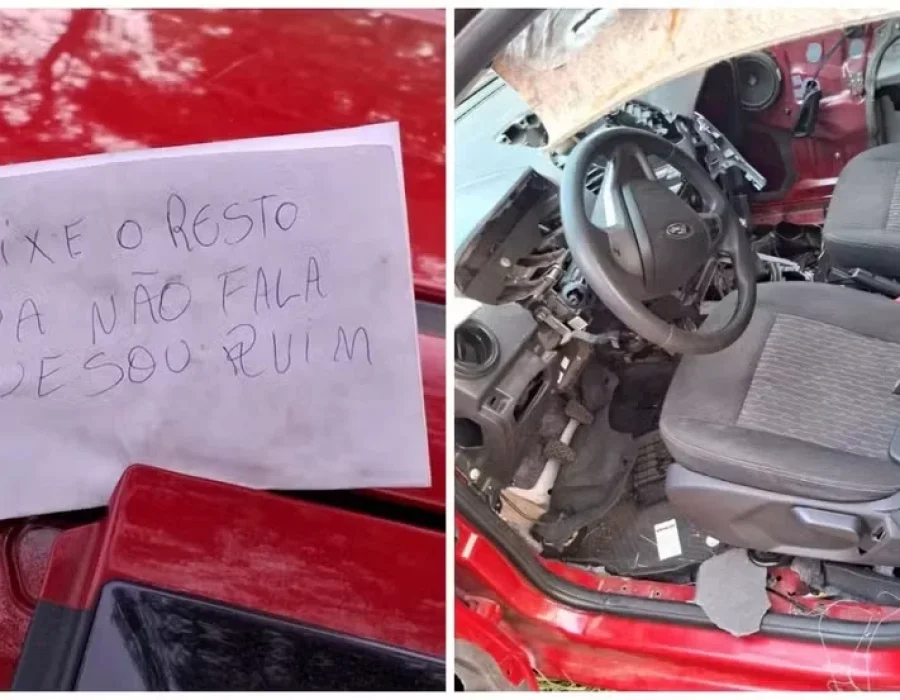 IXE O RESTO
A NÃO FALA
UE SOU RUIM